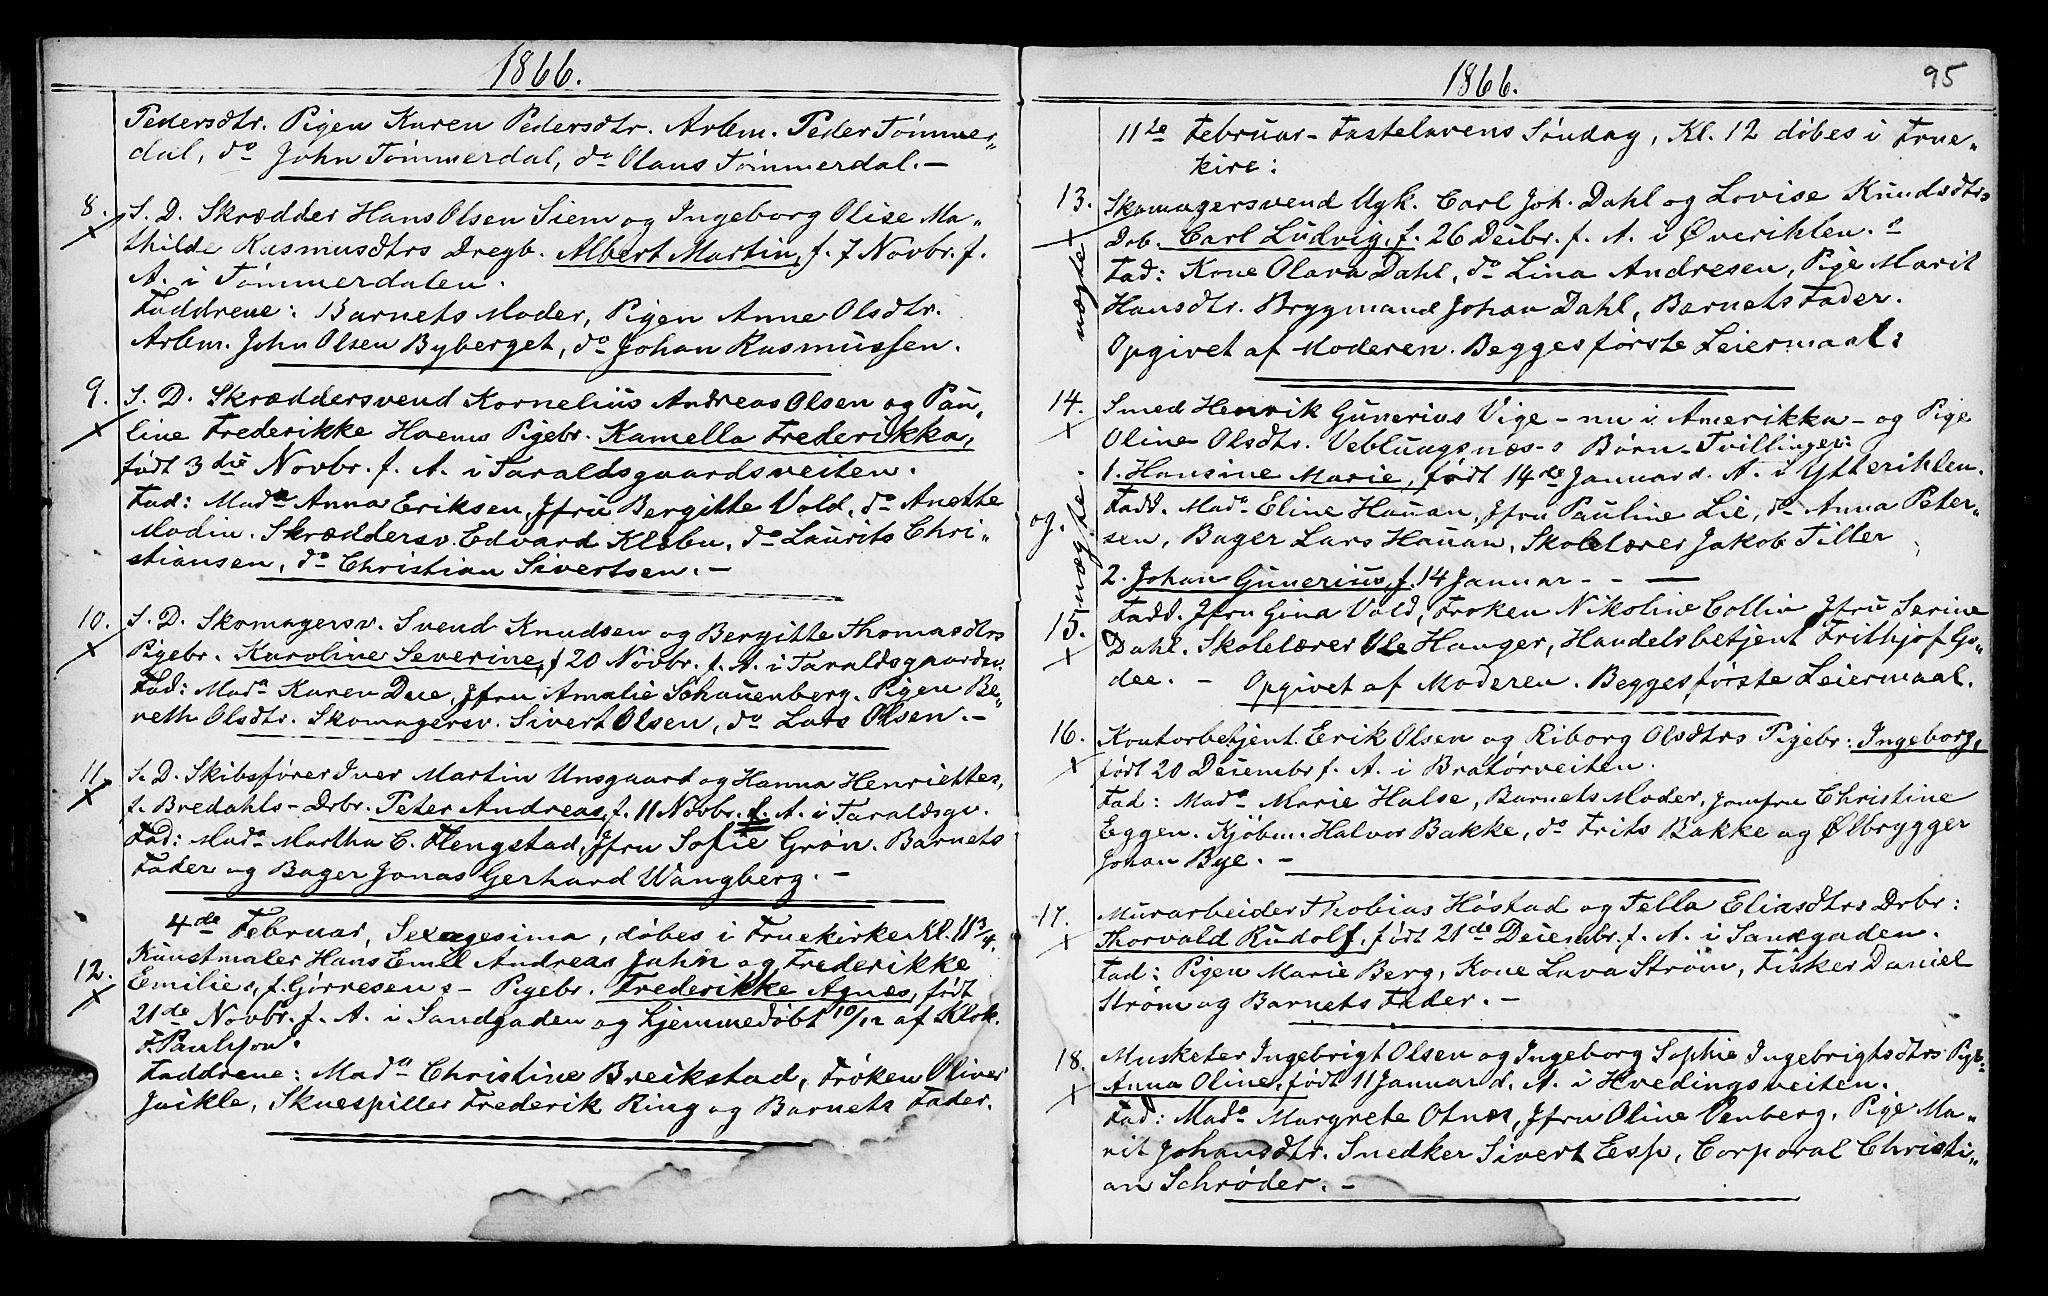 1866.
Pedersdtr. Pigen Karen Pedersdtr. Arbm. Peder Tømmer„
dal, do John Tømmerdal, do Olaus Tømmerdal. –
8. S. D. Skrædder Hans Olsen Siem og Ingeborg Olise Ma„
thilde Rasmusdtrs Dregb. Albert Martin, f. 7 Novbr. f.
A. i Tømmerdalen.
Faddrene: Barnets Moder, Pigen Anne Olsdtr.
Arbm. John Olsen Byberget, do Johan Rasmussen.
9. S. D. Skræddersvend Kornelius Andreas Olsen og Pau„
line Frederikke Hoems Pigebr. Kamella Frederikka,
født 3die Novbr. f. A. i Taraldsgaardsveiten.
Fad: Mada Anna Eriksen, Jfru Bergitte Vold, do Anette
Modin. Skræddersv. Edvard Klæbu, do Laurits Chri„
stiansen, do Christian Sivertsen. –
10. S. D. Skomagersv. Svend Knudsen og Bergitte Thomasdtrs
Pigebr. Karoline Severine, f 20 Novbr. f. A. i Taraldsgaardsv.
Fad: Mada Karen Due, Jfru Amalie Schauenberg. Pigen Be„
reth Olsdtr. Skomagersv. Sivert Olsen, do Lars Olsen. –
11. S. D. Skibsfører Iver Martin Unsgaard og Hanna Henriettes,
f. Bredahls – Drbr. Peter Andreas, f. 11 Novbr. f. A. i Taraldsgv.
Fad: Mada Martha C. Flengstad, Jfru Sofie Grøn. Barnets
Fader og Bager Jonas Gerhard Wangberg. –
4de Februar, Sexagesima, døbes i Fruekirke Kl. 11 3/4.
12. Kunstmaler Hans Emil Andreas Jahn og Frederikke
Emilies, f. Gørresens – Pigebr. Frederikke Agnes, født
21de Novbr. f. A. i Sandgaden og hjemmedøbt 10/12 af Klok.
F. Paulson.
Faddrene: Mada Christine Breikstad, Frøken Oliver
Jaikle, Skuespiller Frederik Ring og Barnets Fader.
1866.
95
11te Februar – Fastelavens Søndag, Kl. 12 døbes i Frue„
kire:
13. Skomagersvend Ugk. Carl Joh. Dahl og Lovise Knudsdtrs
Drb. Carl Ludvig, f. 26 Decbr. f. A. i Øverihlen.
uægte
Fad: Kone Olava Dahl, do Lina Andresen, Pige Marit
Hansdtr. Brygmand Johan Dahl, Barnets Fader.
Opgivet af Moderen. Begges første Leiermaal:
14. Smed Henrik Gunerius Vige – nu i Amerikka – og Pige
Oline Olsdtr. Veblungsnæs-s Børn – Tvillinger:
1. Hansine Marie, født 14de Januar d. A. i Ytterihlen.
og. uægte.
Fadd. Mada Eline Hauan, Jfru Pauline Lie, do Anna Peter„
sen, Bager Lars Hauan, Skolelærer Jakob Tiller
2. Johan Gunerius, f. 14 Januar – – —
15. Fadd. Jfru Gina Vold, Frøken Nikoline Collin Jfru Serine
Dahl. Skolelærer Ole Hanger, Handelsbetjent Frithjof Go„
dee. – Opgivet af Moderen. Begges første Leiermaal.
16. Kontorbetjent Erik Olsen og Riborg Olsdtrs Pigebr: Ingeborg,
født 20 Decembr f. A. i Bratørveiten.
Fad: Mada Marie Halse, Barnets Moder, Jomfru Christine
Eggen. Kjøbm. Halvor Bakke, do Frits Bakke og Ølbrygger
Johan Bye. –
17. Murarbeider Thobias Høstad og Tella Eliasdtrs Drbr:
Thorvald Rudolf, født 21de Decembr. f. A. i Sandgaden.
Fad: Pigen Marie Berg, Kone Lava Strøm, Fisker Daniel
Strøm og Barnets Fader. –
18. Musketer Ingebrigt Olsen og Ingeborg Sophie Ingebrigtsdtrs Pigb.
Anna Oline, født 11 Januar d. A. i Hvedingsveiten.
Fad: Mada Margrete Otnes, Jfru Oline Venberg, Pige Ma„
rit Johansdtr. Snedker Sivert Esp, Corporal Christi„
an Schrøder. –